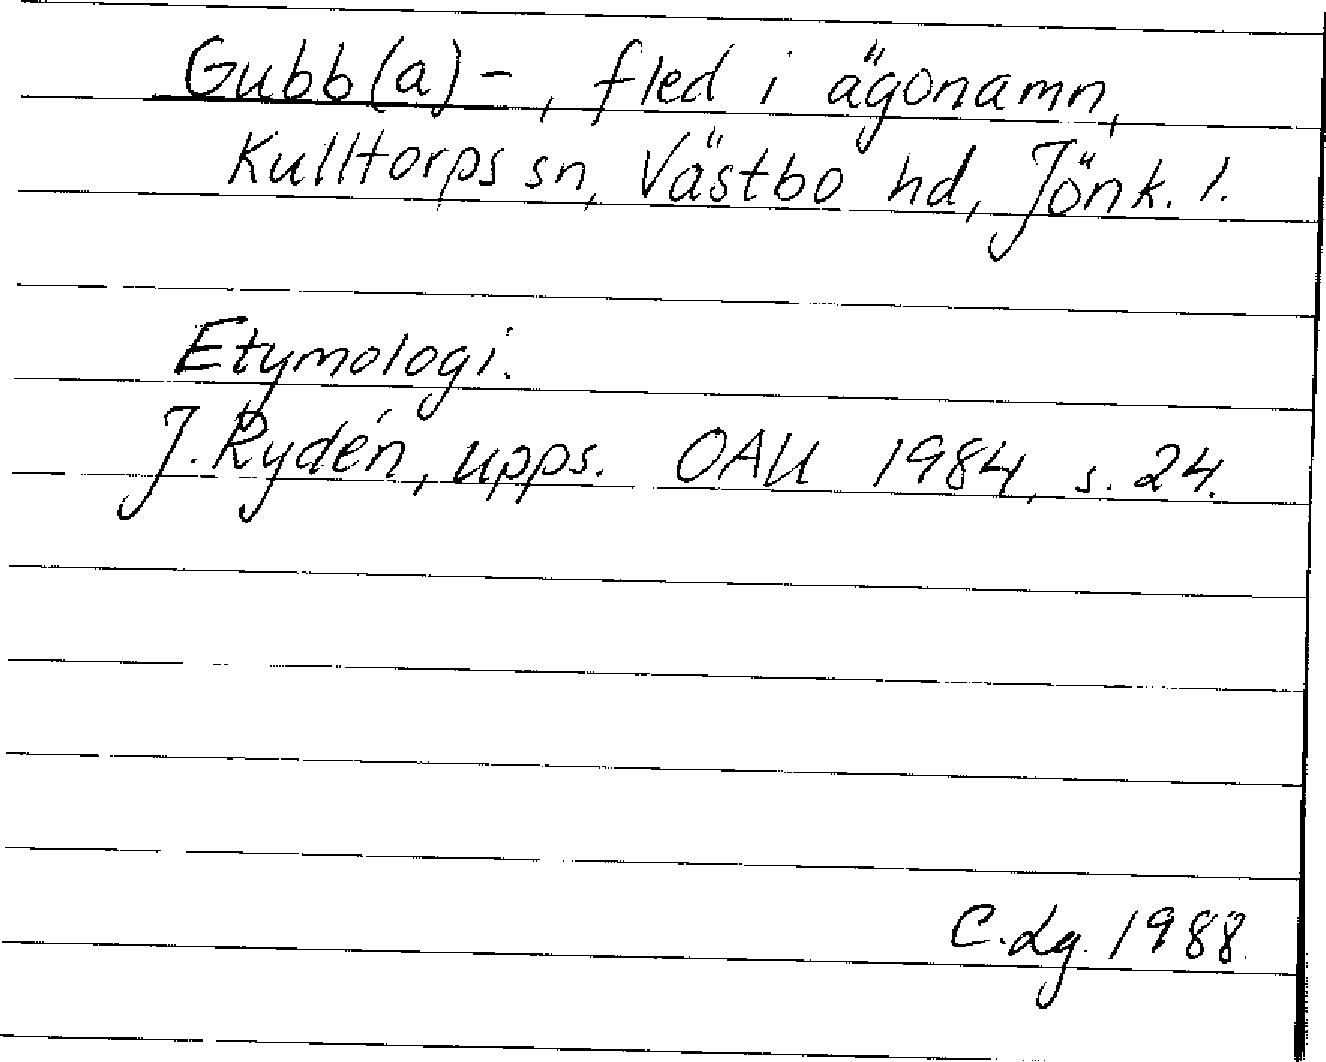 Gubb(a)-, fled i ägonamn,
Kulltorps sn, Västbo hd, Jönk. l.
Etymologi.
J. Rydén, upps. OAU 1984, s. 24.
C. Lg. 1988.